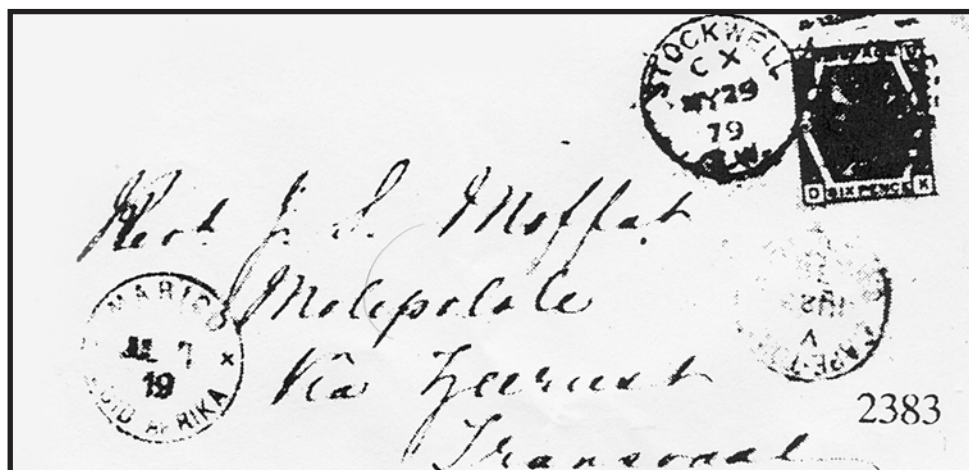 STOCKWELL
C X
MY 29
79
S.W.
SIX PENCE
Revd J. S. Moffat
Molepolole
Via Zeerust
Transvaal
MARICO
JUL 7
19
ZUID AFRIKA
2383